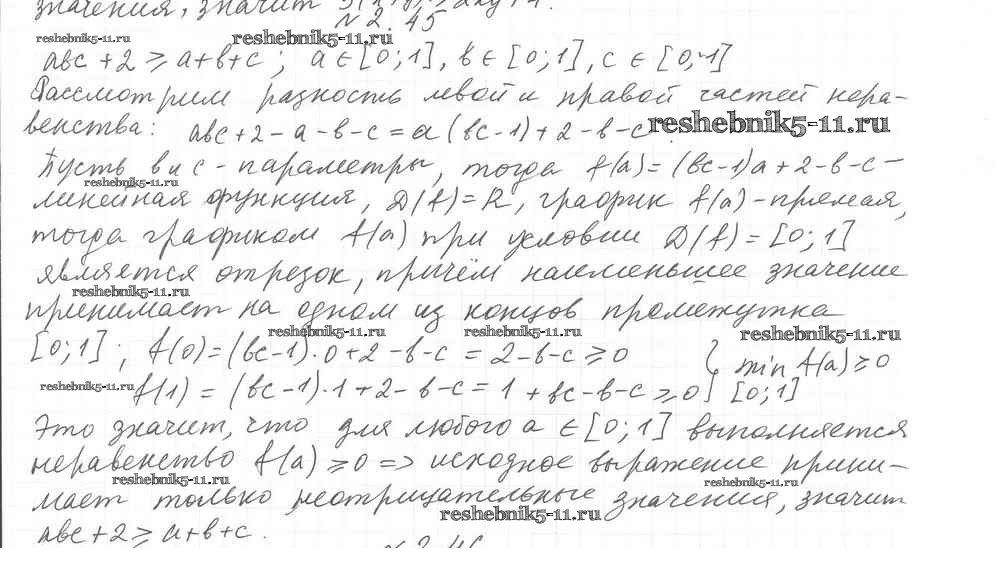 значения, значит
№ 2. 45
reshebnik5-11.ru reshebnik5-11.ru
abc + 2 ≥ a+b+c ; a ∈ [0;1], b ∈ [0;1], c ∈ [0;1]
Рассмотрим разность левой и правой частей нера-
венства: abc + 2 - a - b - c = a (bc - 1) + 2 - b - c. reshebnik5-11.ru
Пусть b и c - параметры, тогда f(a) = (bc-1)a + 2 - b - c -
reshebnik5-11.ru
линейная функция, D(f) = R, график f(a) - прямая,
тогда графиком f(a) при условии D(f) = [0; 1]
является отрезок, причём наименьшее значение
reshebnik5-11.ru
принимает на одном из концов промежутка
reshebnik5-11.ru reshebnik5-11.ru reshebnik5-11.ru
[0;1] ; f(0) = (bc-1)·0 + 2 - b - c = 2 - b - c ≥ 0 } min f(a) ≥ 0
reshebnik5-11.ru f(1) = (bc-1)·1 + 2 - b - c = 1 + bc - b - c ≥ 0 [0;1]
Это значит, что для любого a ∈ [0; 1] выполняется
неравенство f(a) ≥ 0 => исходное выражение прини-
reshebnik5-11.ru reshebnik5-11.ru
мает только неотрицательные значения, значит
reshebnik5-11.ru
abc + 2 ≥ a + b + c.